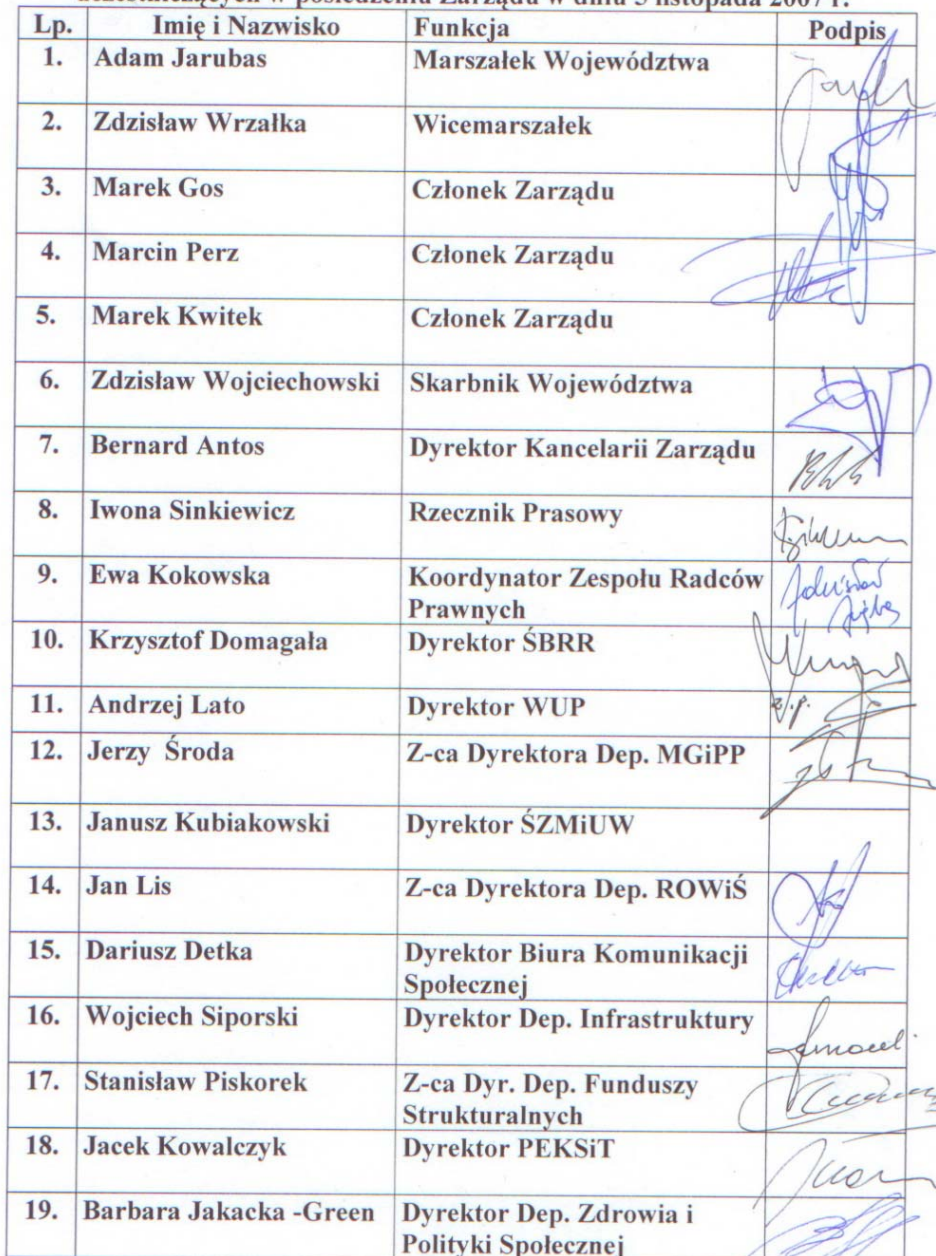 uczestniczących w posiedzeniu Zarządu w dniu 5 listopada 2007 r.
Lp. Imię i Nazwisko Funkcja Podpis
1. Adam Jarubas Marszałek Województwa
2. Zdzisław Wrzałka Wicemarszałek
3. Marek Gos Członek Zarządu
4. Marcin Perz Członek Zarządu
5. Marek Kwitek Członek Zarządu
6. Zdzisław Wojciechowski Skarbnik Województwa
7. Bernard Antos Dyrektor Kancelarii Zarządu
8. Iwona Sinkiewicz Rzecznik Prasowy
9. Ewa Kokowska Koordynator Zespołu Radców
Prawnych
10. Krzysztof Domagała Dyrektor ŚBRR
11. Andrzej Lato Dyrektor WUP z.p.
12. Jerzy Środa Z-ca Dyrektora Dep. MGiPP
13. Janusz Kubiakowski Dyrektor ŚZMiUW
14. Jan Lis Z-ca Dyrektora Dep. ROWiŚ
15. Dariusz Detka Dyrektor Biura Komunikacji
Społecznej
16. Wojciech Siporski Dyrektor Dep. Infrastruktury
17. Stanisław Piskorek Z-ca Dyr. Dep. Funduszy
Strukturalnych
18. Jacek Kowalczyk Dyrektor PEKSiT
19. Barbara Jakacka -Green Dyrektor Dep. Zdrowia i
Polityki Społecznej